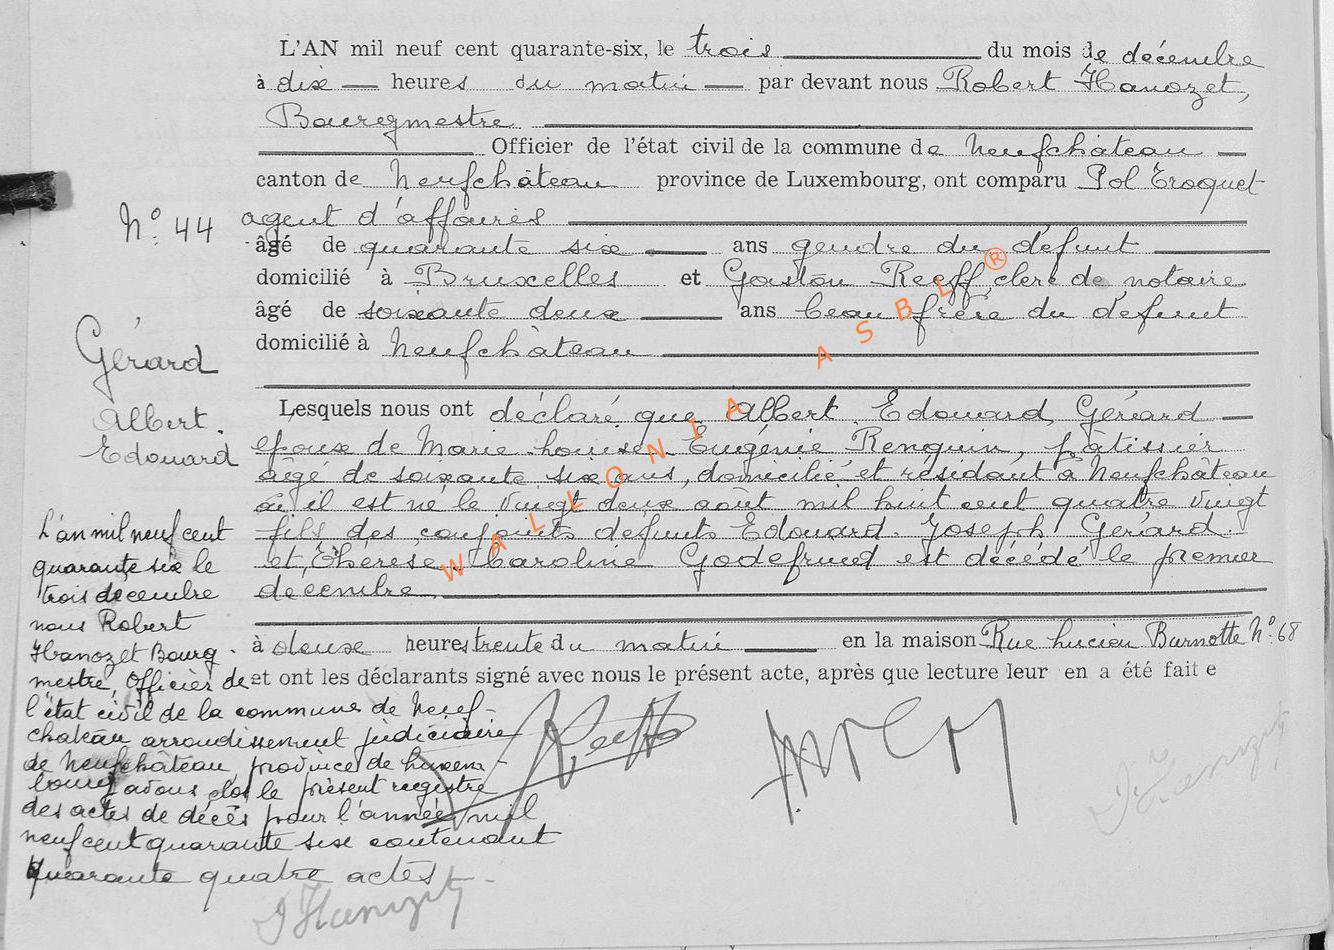 L'AN mil neuf cent quarante-six, le trois du mois de décembre
à dix heures du matin par devant nous Robert Hanozet,
Bourgmestre
Officier de l'état civil de la commune de Neufchâteau
canton de Neufchâteau province de Luxembourg, ont comparu Pol Troquet
N° 44 agent d'affaires
âgé de quarante six ans gendre du défunt
domicilié à Bruxelles et Gaston Reeff clerc de notaire
âgé de soixante deux ans beau frère du défunt
domicilié à Neufchâteau
Gérard
Albert.
Edouard
Lesquels nous ont déclaré que Albert Edouard Gérard
époux de Marie Louise Eugénie Renquin, pâtissier
âgé de soixante six ans, domicilié et résidant à Neufchâteau
où il est né le vingt deux août mil huit cent quatre vingt
fils des conjoints défunts Edouard Joseph Gérard
et Thérèse Caroline Godefrind est décédé le premier
décembre
à deux heures trente du matin en la maison Rue Lucien Burnotte N° 68
et ont les déclarants signé avec nous le présent acte, après que lecture leur en a été faite
L'an mil neuf cent
quarante six le
trois decembre
nous Robert
Hanozet Bourg-
mestre, Officier de
l'état civil de la commune de Neuf-
chateau arrondissement judiciaire
de Neufchâteau province de Luxem-
bourg avons clos le présent registre
des actes de décès pour l'année mil
neuf cent quarante six contenant
quarante quatre actes
WALLONIA ASBL ®